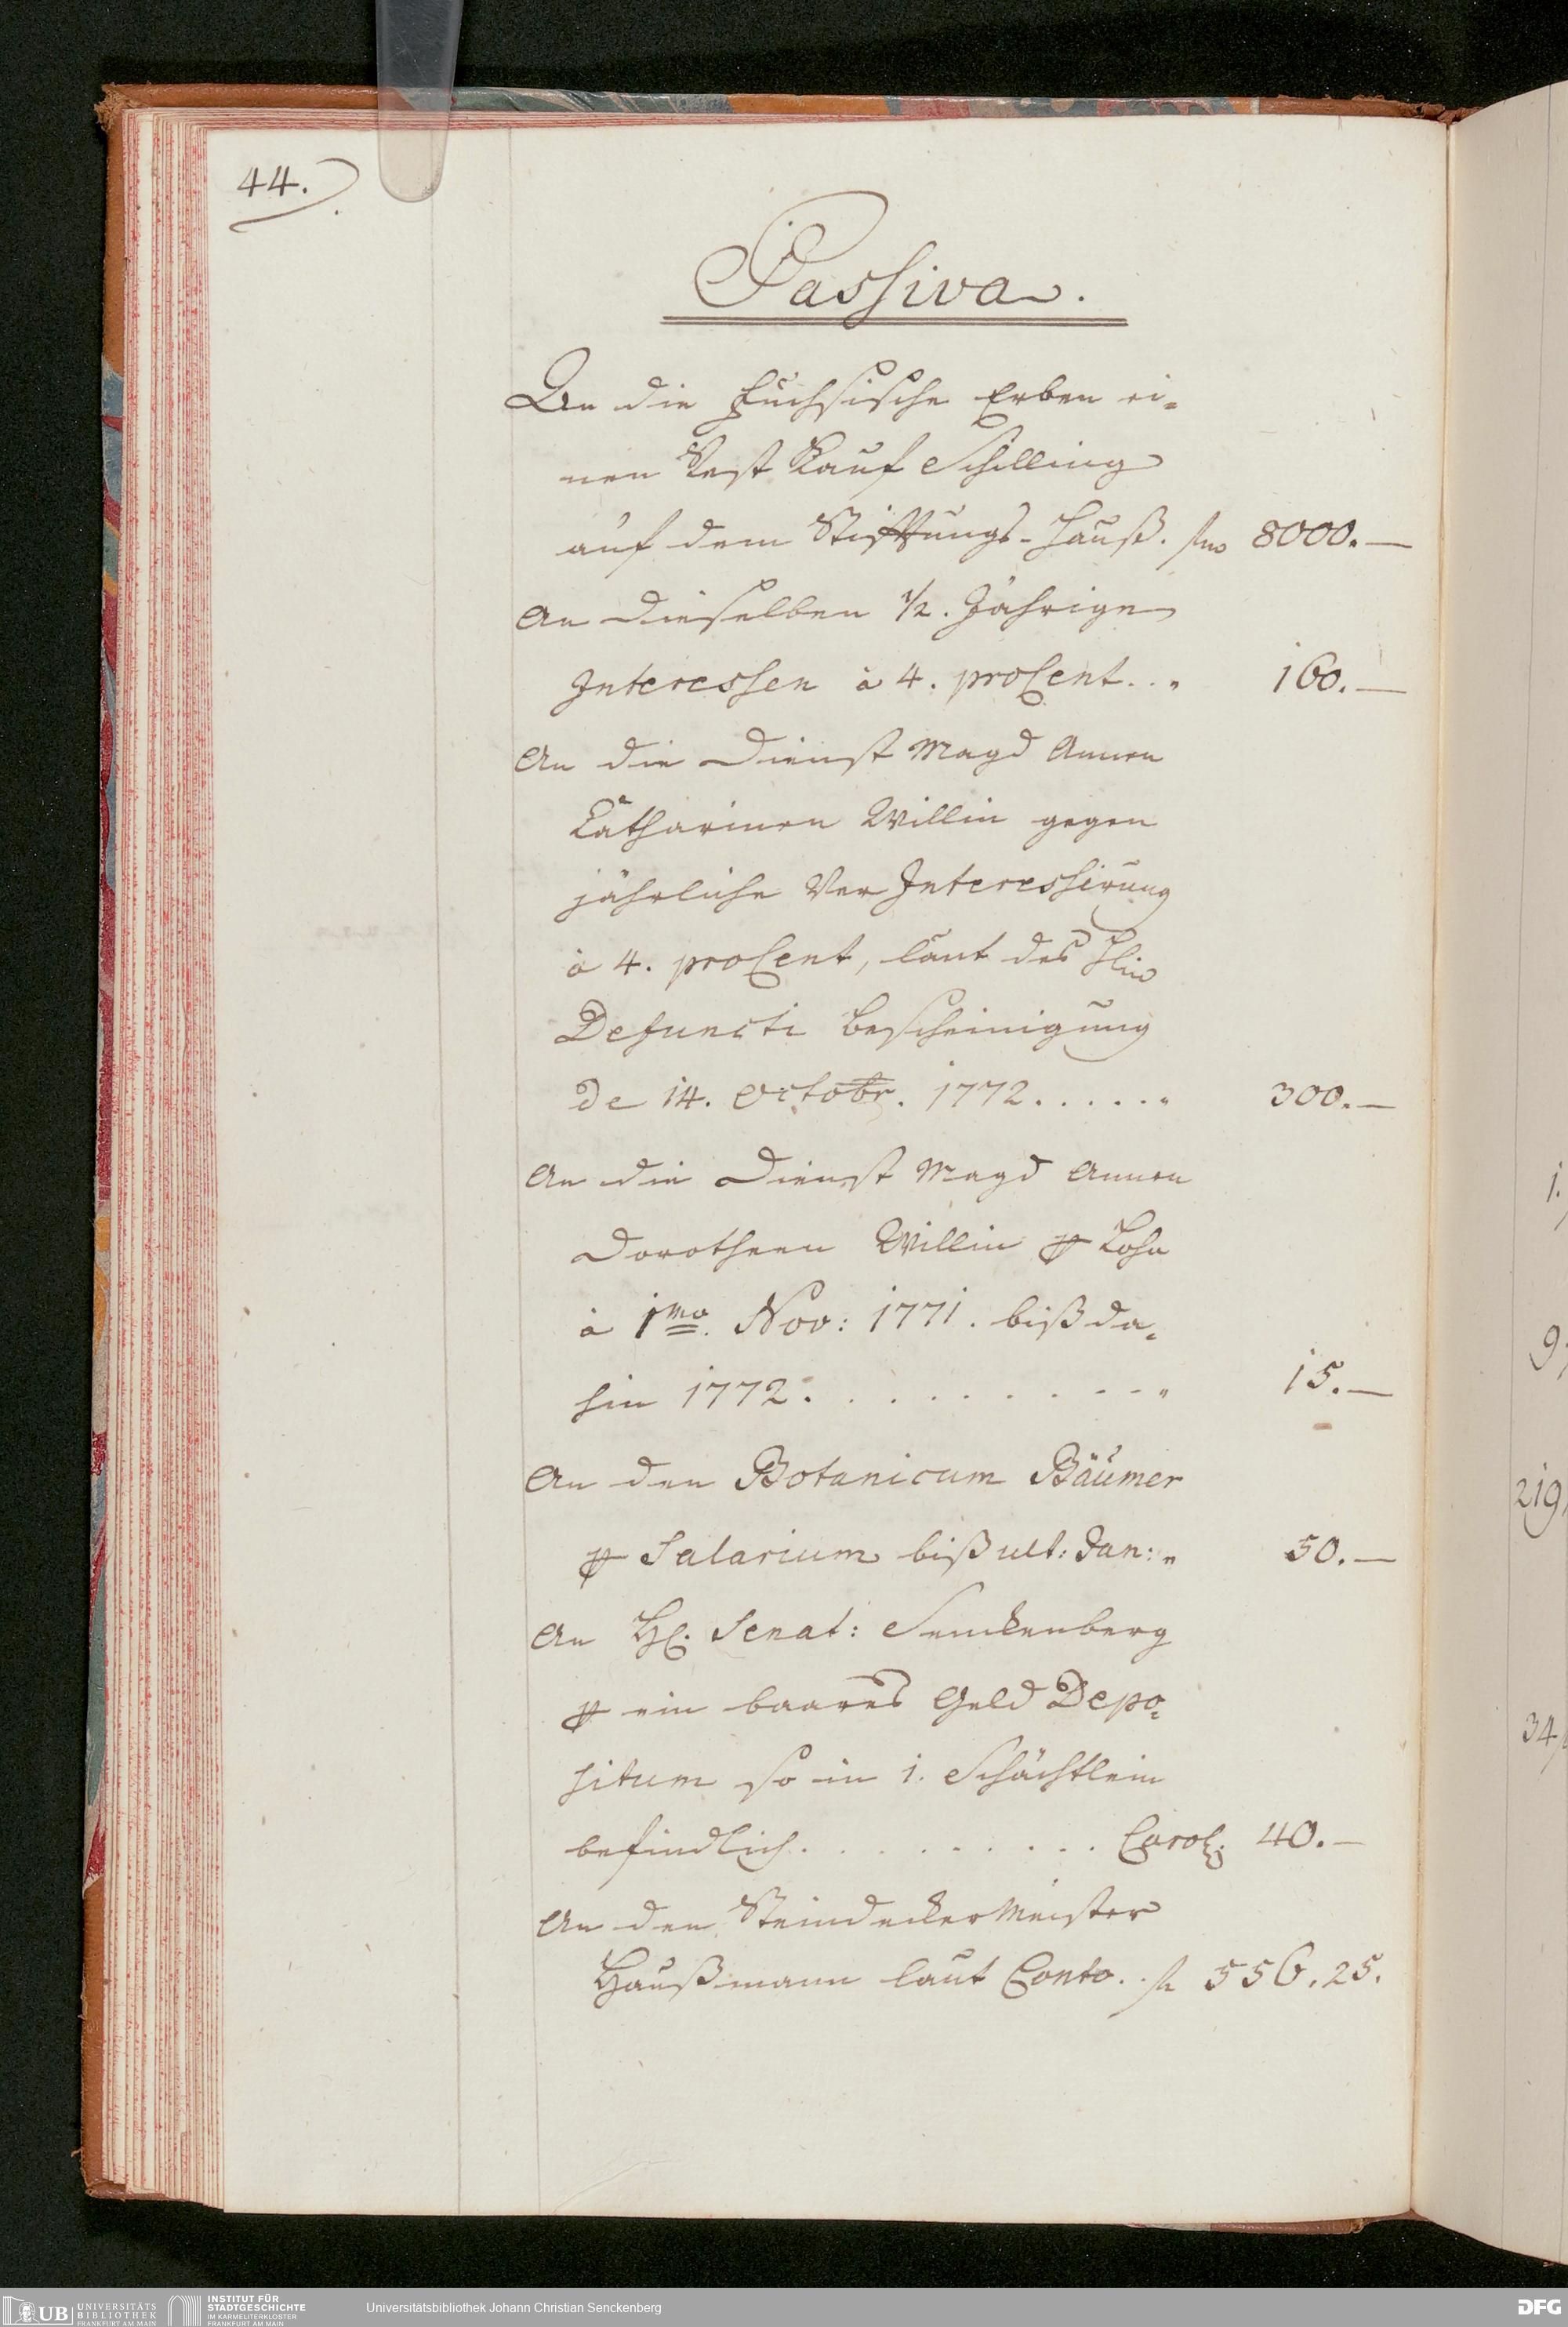 44.
Passiva.
An die Fuchsische Erben ei-
nen Rest Kauf Schilling
auf dem Stifftungs-Hauß. 8000.—
An dieselben 1/2. Jährige
Interessen à 4. proCent. . „ 160.—
An die Dienst Magd Annen
Catharinen Willin gegen
jährliche Ver Interessirung
à 4. proCent, laut des
Defuncti Bescheinigung
de 14. Octobr. 1772. . . . . . „ 300.—
An die Dienst Magd Annen
Dorotheen Willin ⅌ Lohn
à 1mo. Nov: 1771. biß da-
hin 1772. . . . . . . . . . „ 15.—
An den Botanicum Bäumer
⅌ Salarium biß ult: Jan: „ 50.—
An H. Senat: Senckenberg
⅌ ein baares Geld Depo-
situm so in 1. Schächtlein
befindlich. . . . . . . . . Carol. 40.—
An den Steindecker Meister
Haußmann laut Conto. . fl 556.25.
1.
219
34
UB UNIVERSITÄTS
BIBLIOTHEK
FRANKFURT AM MAIN
INSTITUT FÜR
STADTGESCHICHTE
IM KARMELITERKLOSTER
FRANKFURT AM MAIN
Universitätsbibliothek Johann Christian Senckenberg
DFG